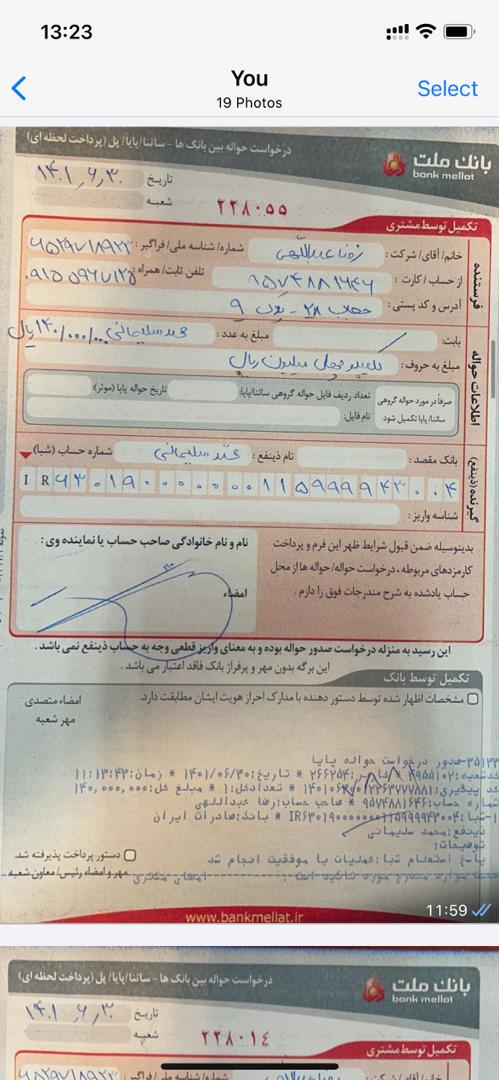 13:23
You
19 Photos
Select
درخواست حواله بین بانک ها - ساتنا/پایا/ پل (پرداخت لحظه ای)
بانک ملت
bank mellat
تاریخ ۱۴۰۱٫۶٫۳۰
شعبه
۲۲۸۰۵۵
تکمیل توسط مشتری
فرستنده
خانم/آقای/ شرکت: رضا عبداللهی شماره/ شناسه ملی/ فراگیر:
از حساب/ کارت: ۹۵۷۴۸۸۱۶۴۶ تلفن ثابت/ همراه:
آدرس و کد پستی:
اطلاعات حواله
بابت: مبلغ به عدد: محمد سلیمانی ۱۴۰/۰۰۰/۰۰۰ ریال
مبلغ به حروف: یکصد و چهل میلیون ریال
صرفاً در مورد حواله گروهی ساتنا/ پایا تکمیل شود
تعداد ردیف فایل حواله گروهی ساتنا/پایا: تاریخ حواله پایا (موثر):
نام فایل:
گیرنده (ذینفع)
بانک مقصد: نام ذینفع: محمد سلیمانی شماره حساب (شبا)
IR۶۳۰۱۹۰۰۰۰۰۰۰۱۱۵۹۹۹۹۴۳۰۰۴
شناسه واریز:
بدینوسیله ضمن قبول شرایط ظهر این فرم و پرداخت
کارمزدهای مربوطه، درخواست حواله/ حواله ها از محل
حساب یادشده به شرح مندرجات فوق را دارم.
نام و نام خانوادگی صاحب حساب یا نماینده وی:
امضاء
این رسید به منزله درخواست صدور حواله بوده و به معنای واریز قطعی وجه به حساب ذینفع نمی باشد.
این برگه بدون مهر و پرفراژ بانک فاقد اعتبار می باشد.
تکمیل توسط بانک
مشخصات اظهار شده توسط دستور دهنده با مدارک احراز هویت ایشان مطابقت دارد.
امضاء متصدی
مهر شعبه
۳۵۱۳۳-صدور درخواست حواله پایا
کدشعبه: * تاریخ:۱۴۰۱/۰۶/۳۰ * زمان:۱۱:۱۳:۴۳
کد پیگیری: * تعدادکل:۱ * مبلغ کل:۱۴۰,۰۰۰,۰۰۰
شماره حساب:۹۵۷۴۸۸۱۶۴۶ * صاحب حساب:رضا عبداللهی
۱-شبا:IR۶۳۰۱۹۰۰۰۰۰۰۰۱۱۵۹۹۹۹۴۳۰۰۴ * بانک:صادرات ایران
ذینفع:محمد سلیمانی
توضیحات:
پاسخ استعلام شبا:عملیات با موفقیت انجام شد
دستور پذیرفته شد.
مهر و امضاء رئیس/ معاون شعبه
امضای مشتری
www.bankmellat.ir
11:59
درخواست حواله بین بانک ها - ساتنا/پایا/ پل (پرداخت لحظه ای)
بانک ملت
bank mellat
تاریخ ۱۴۰۱٫۶٫۳۰
شعبه
۲۲۸۰۱۴
تکمیل توسط مشتری